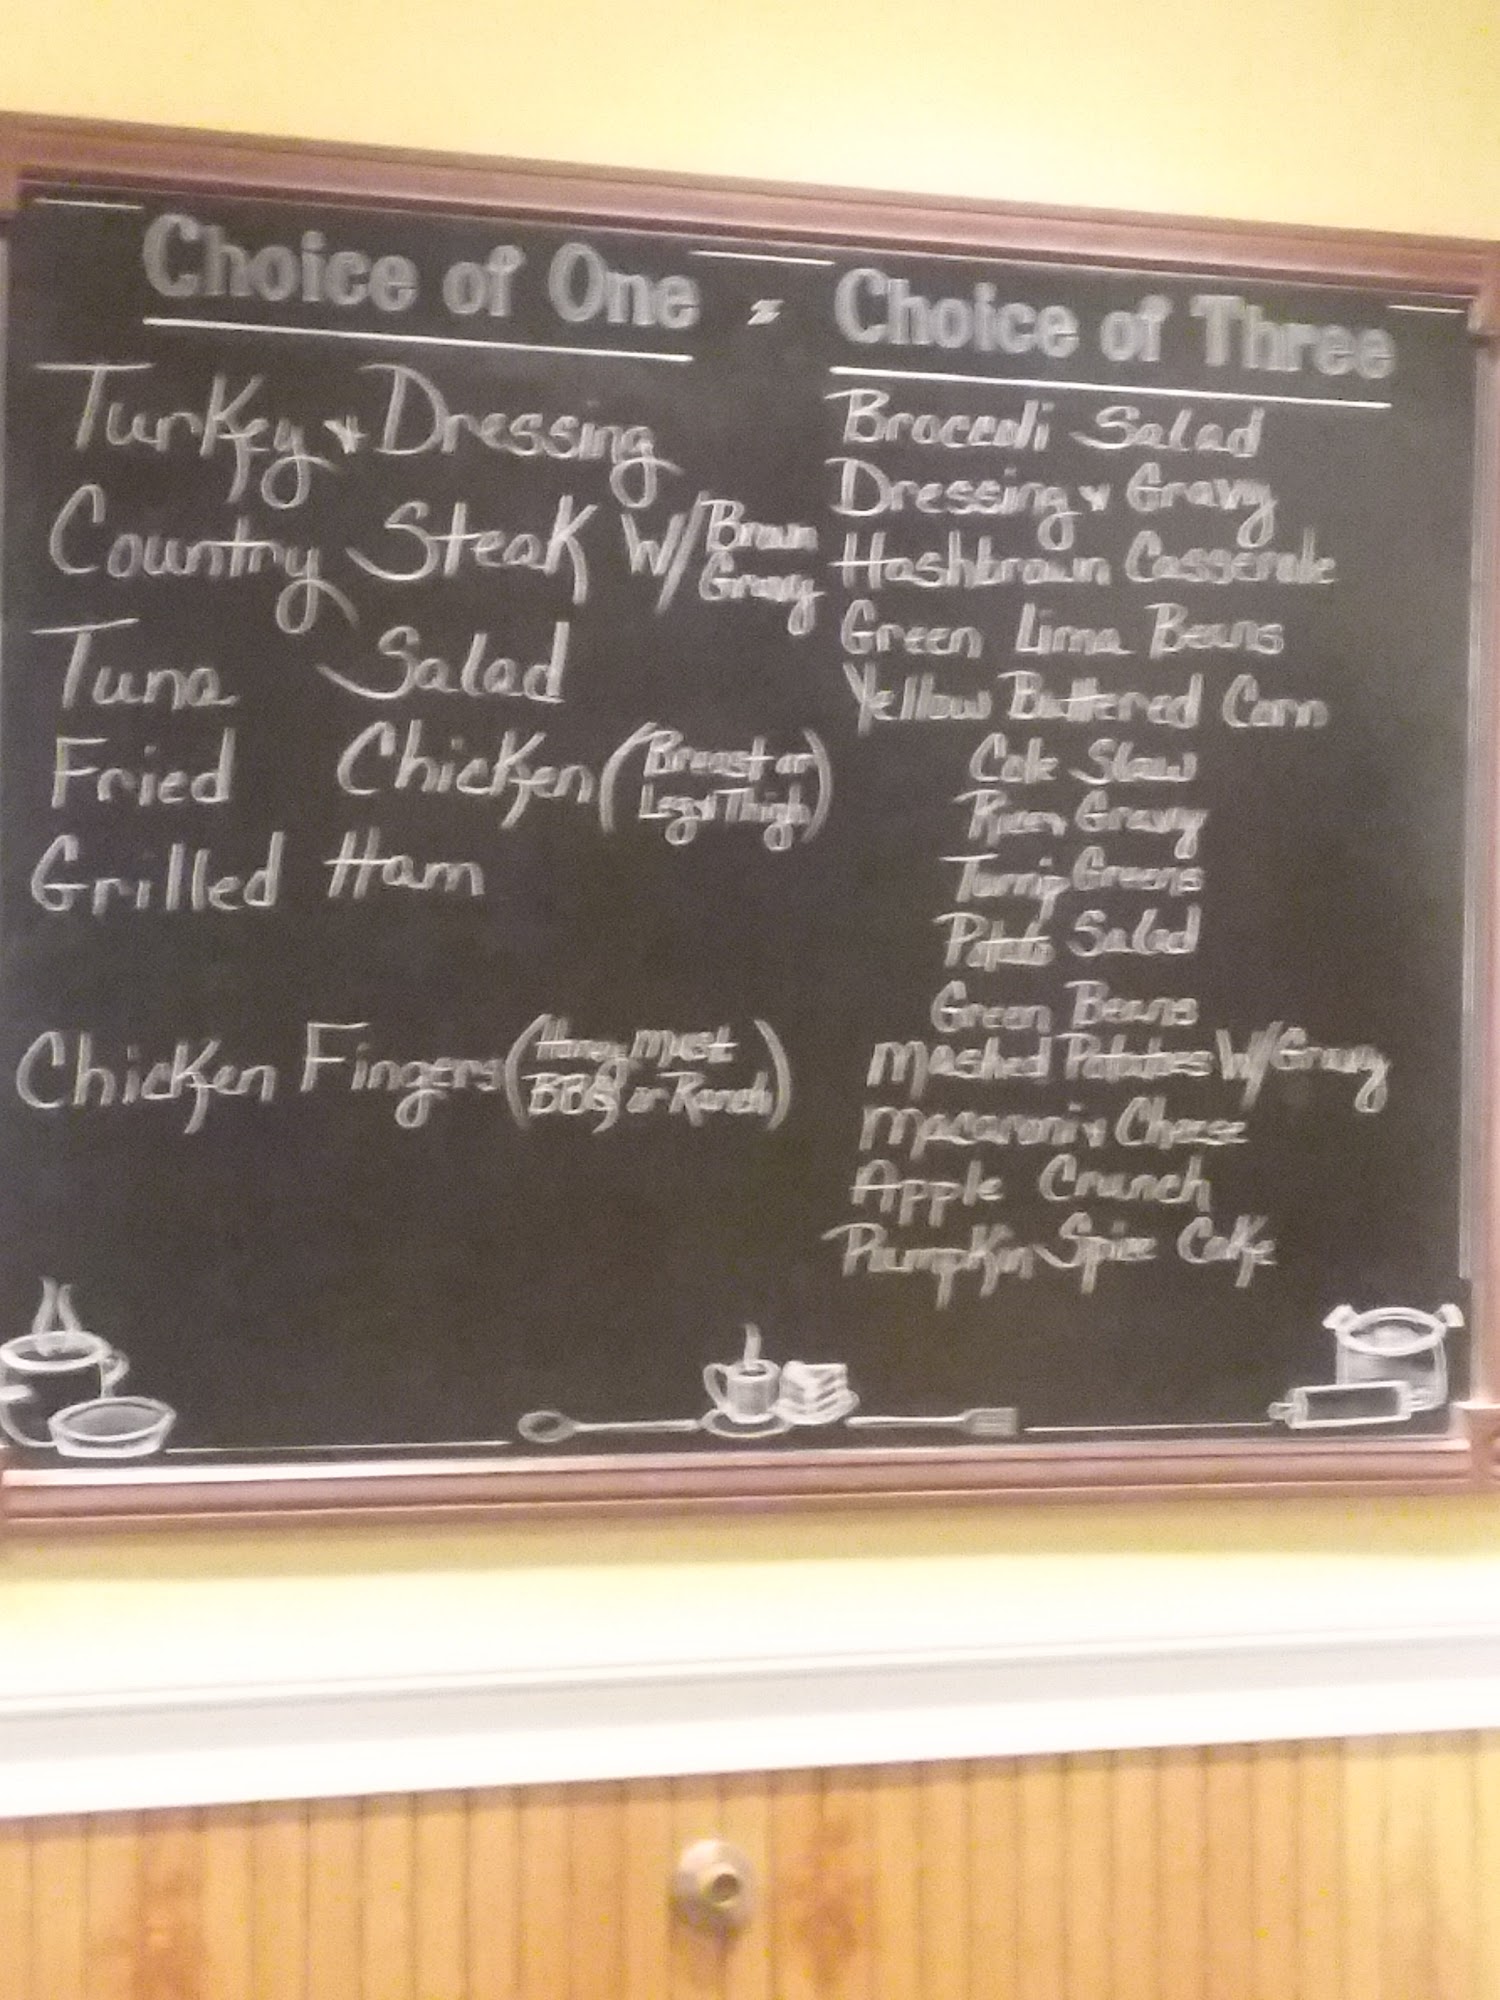 Choice of One - Choice of Three
Turkey & Dressing
Country Steak W/ Brown
Gravy
Tuna Salad
Fried Chicken (Breast or
Leg & Thigh)
Grilled Ham
Chicken Fingers (Honey Must
BBQ or Ranch)
Broccoli Salad
Dressing & Gravy
Hashbrown Casserole
Green Lima Beans
Yellow Buttered Corn
Cole Slaw
Rice & Gravy
Turnip Greens
Potato Salad
Green Beans
Mashed Potatoes W/Gravy
Macaroni & Cheese
Apple Crunch
Pumpkin Spice Cake